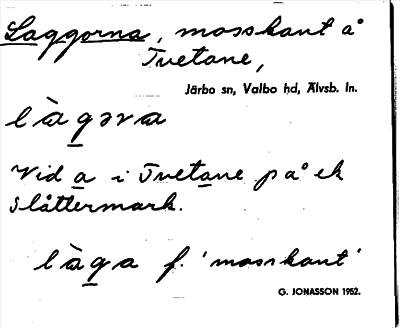 Laggorna, mosskant å
Tvetane,
Järbo sn, Valbo hd, Älvsb. ln.
là̱gəra
Vid a i Tvetane på ek
slåttermark.
làga f. 'mosskant'
G. JONASSON 1952.